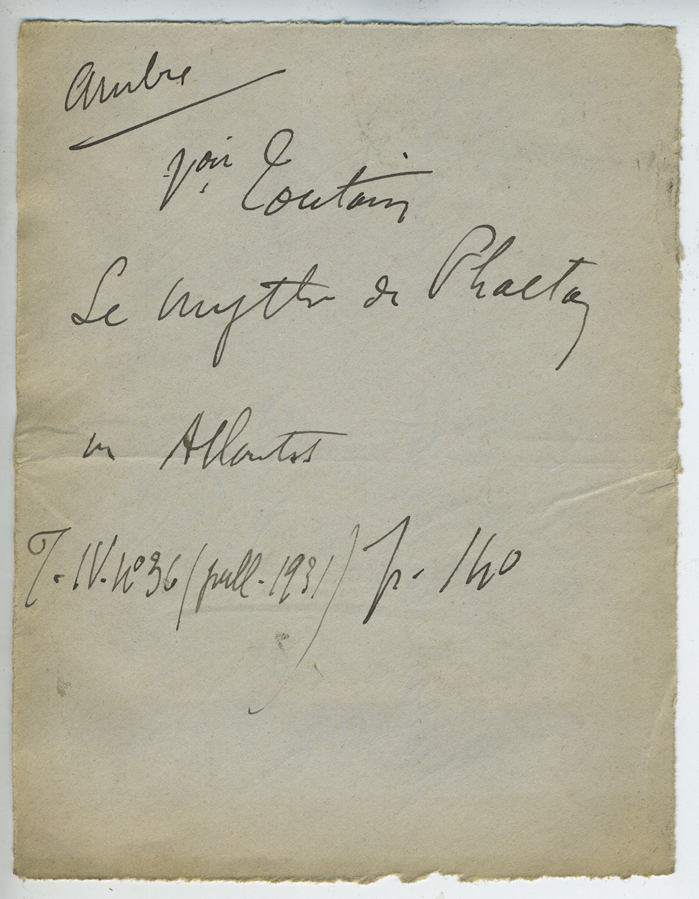 Ambre
voir Toutain
Le mythe de Phaeton
in Atlantis
T. IV. N° 36 (juill. 1931) p. 140